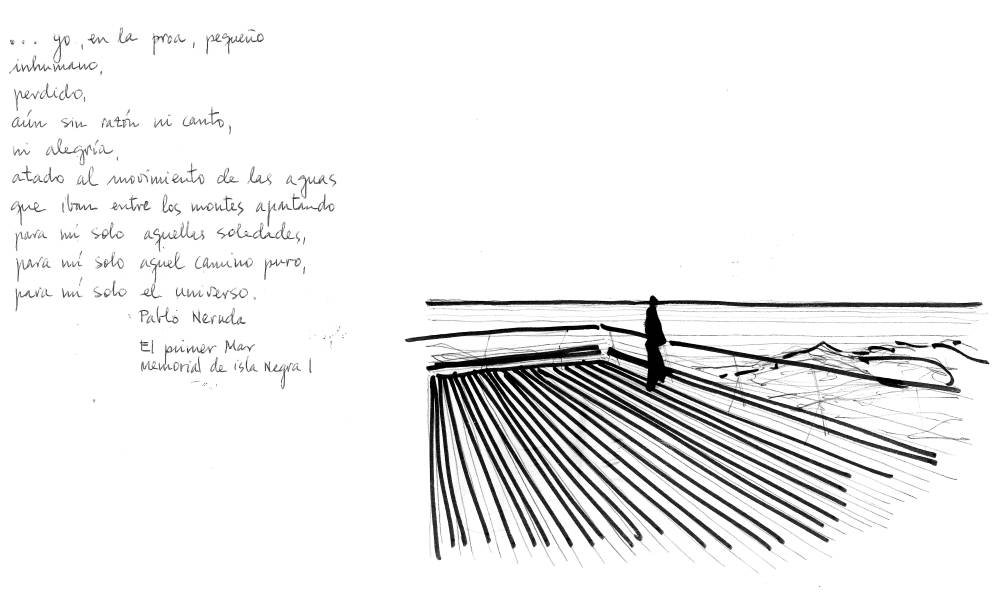 ... yo, en la proa, pequeño
inhumano,
perdido,
aún sin razón ni canto,
ni alegría,
atado al movimiento de las aguas
que iban entre los montes apartando
para mí solo aquellas soledades,
para mí solo aquel camino puro,
para mí solo el universo.
Pablo Neruda
El primer Mar
Memorial de isla Negra I